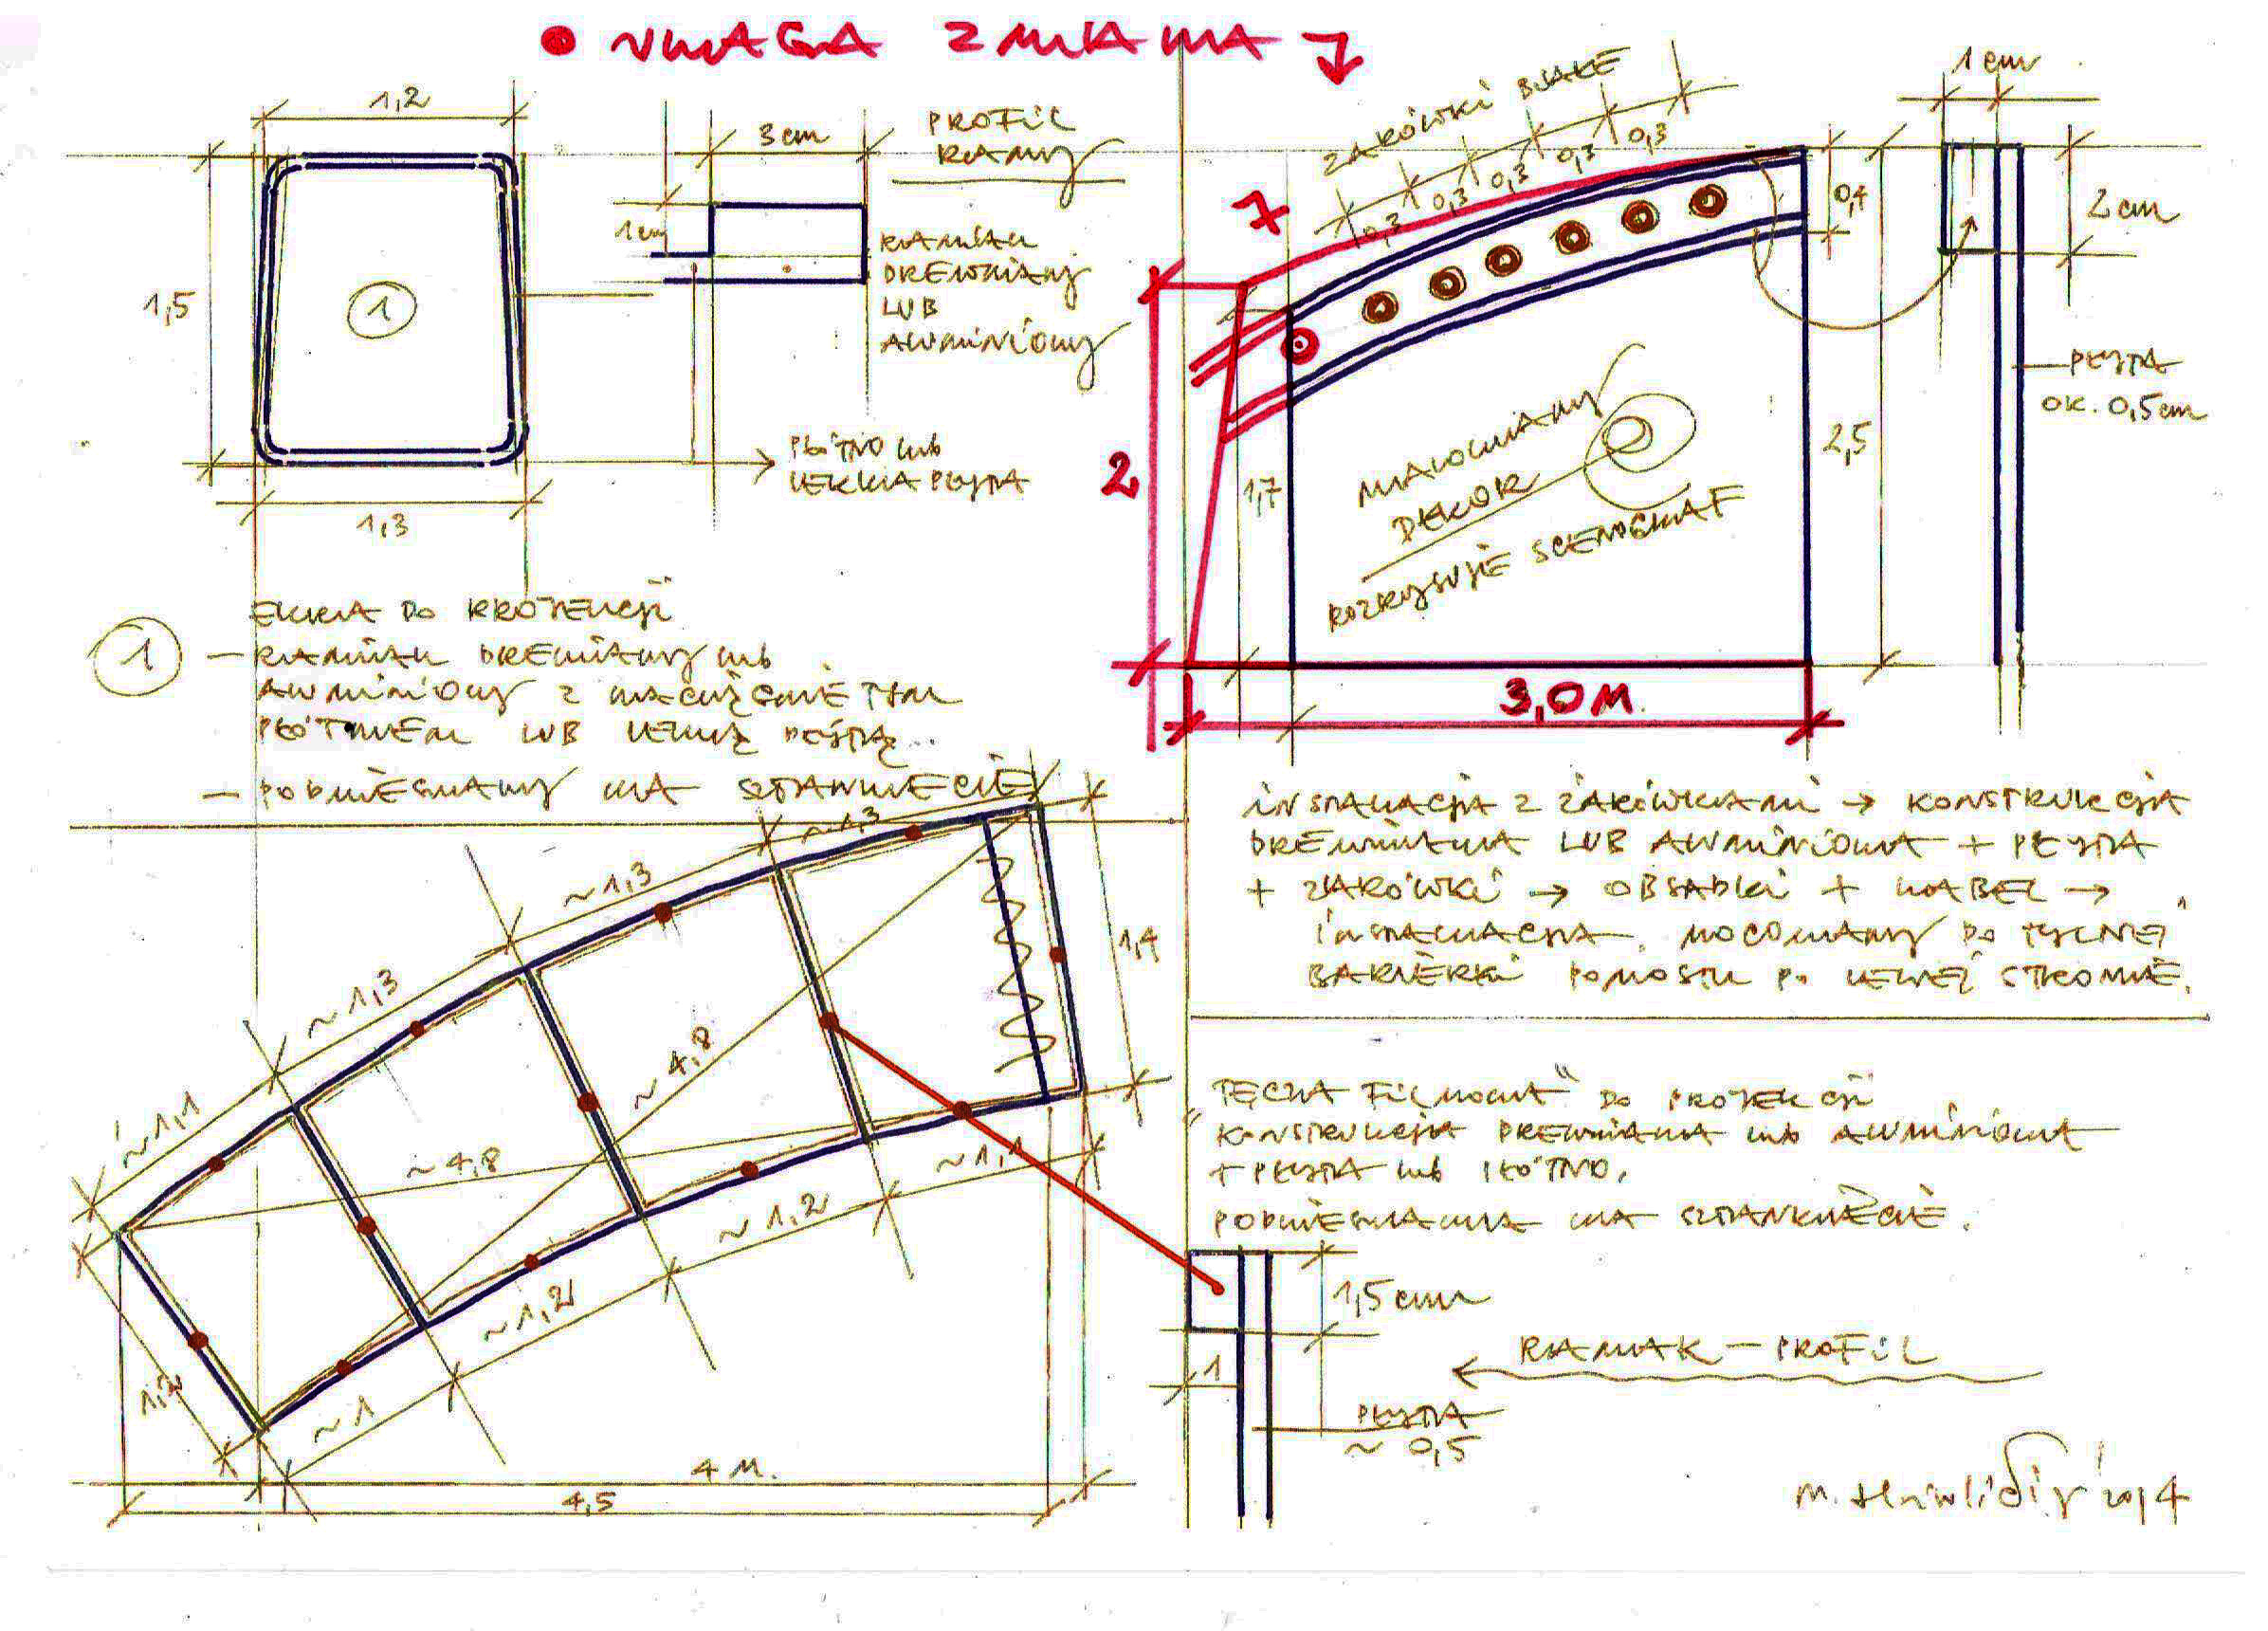 UWAGA ZMIANA
1,2
1,5
1
1,3
3cm
1cm
PROFIL
RAMY
RAMIAK
DREWNIANY
LUB
ALUMINIOWY
PŁÓTNO lub
LEKKA PŁYTA
ŻARÓWKI BIAŁE
0,3
0,3
0,3
0,3
0,3
7
0,4
2
1,7
2,5
MALOWANY
DEKOR
ROZRYSUJE SCENOGRAF
3,0 M.
1cm
2cm
PŁYTA
OK. 0,5cm
1
EKRAN DO PROJEKCJI
— RAMIAK DREWNIANY lub
ALUMINIOWY Z NACIĄGNIĘTYM
PŁÓTNEM LUB LEKKĄ PŁYTĄ..
— PODWIESZANY NA SZTANKIECIE
INSTALACJA Z ŻARÓWKAMI → KONSTRUKCJA
DREWNIANA LUB ALUMINIOWA + PŁYTA
+ ŻARÓWKI → OBSADKI + KABEL →
INSTALACJA, MOCOWANY DO TYLNEJ
BARIERKI POMOSTU PO LEWEJ STRONIE.
~1,1
~1,3
~1,3
~1,3
1,4
~4,8
~4,8
~1,1
~1,2
~1,2
~1
1,2
4 M.
4,5
"TĘCZA FILMOWA" DO PROJEKCJI
KONSTRUKCJA DREWNIANA lub ALUMINIOWA
+ PŁYTA lub PŁÓTNO.
PODWIESZANA NA SZTANKIECIE.
1,5cm
1
RAMIAK — PROFIL
PŁYTA
~ 0,5
2014